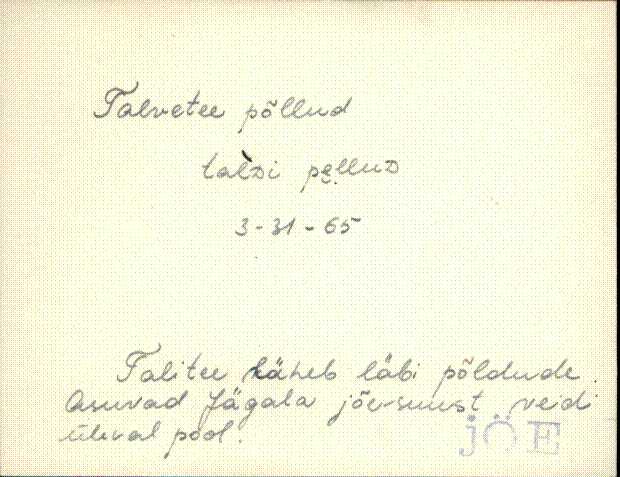 Talvetee põllud
talDi pe̮lluD
3-31-65
Talitee läheb läbi põldude.
Asuvad Jägala jõe-suust veidi
ülevalpool.
JÕE